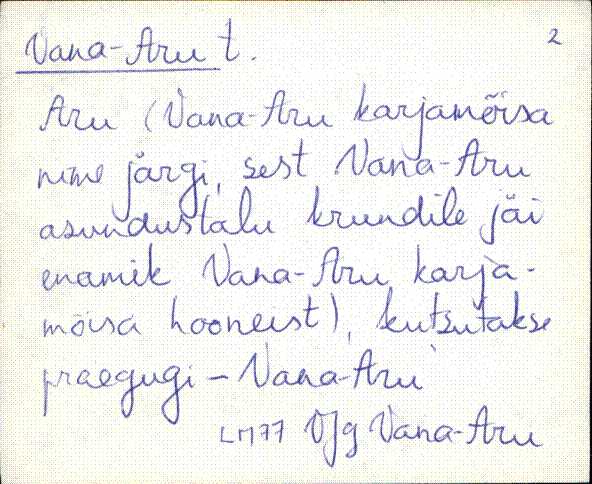 Vana-Aru t. 2
Aru (Vana-Aru karjamõisa
nime järgi, sest Vana-Aru
asundustalu krundile jäi
enamik Vana-Aru karja-
mõisa hooneist), kutsutakse
praegugi – Vana-Aru
LM77 VJg Vana-Aru